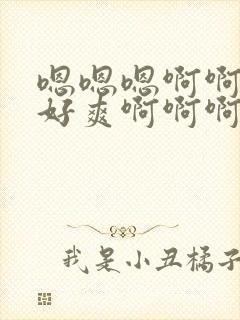 嗯嗯嗯啊啊
好爽啊啊啊
我是小丑橘子